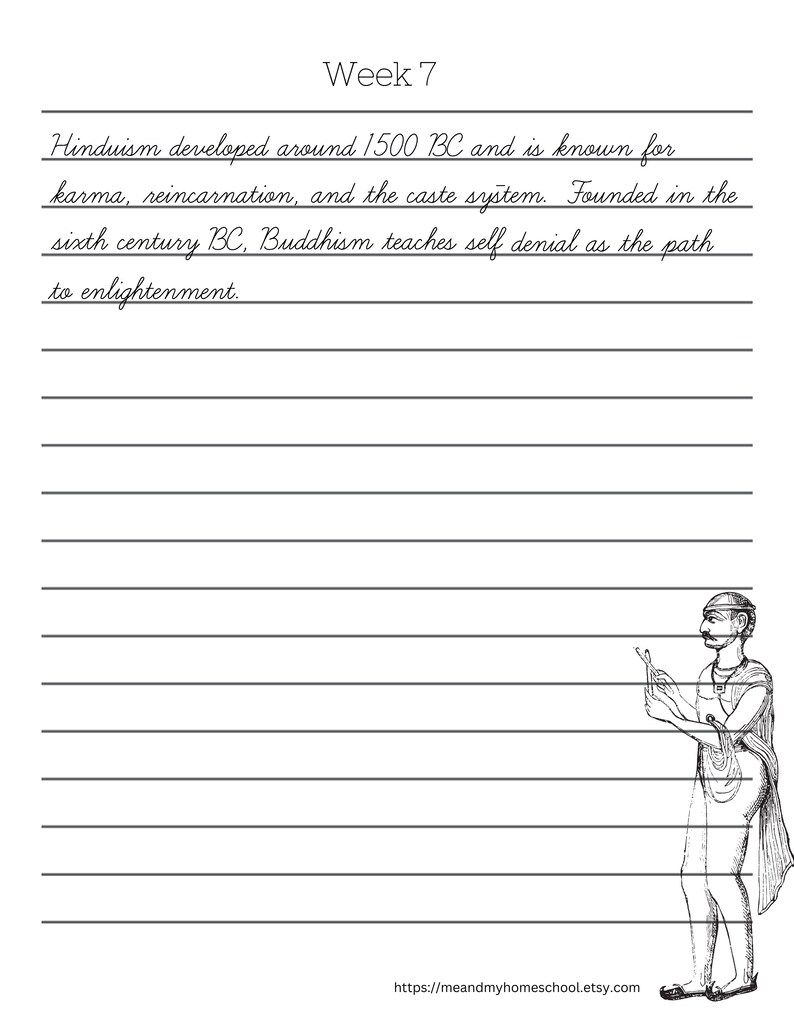 Week 7
Hinduism developed around 1500 BC and is known for
karma, reincarnation, and the caste system. Founded in the
sixth century BC, Buddhism teaches self denial as the path
to enlightenment.
https://meandmyhomeschool.etsy.com